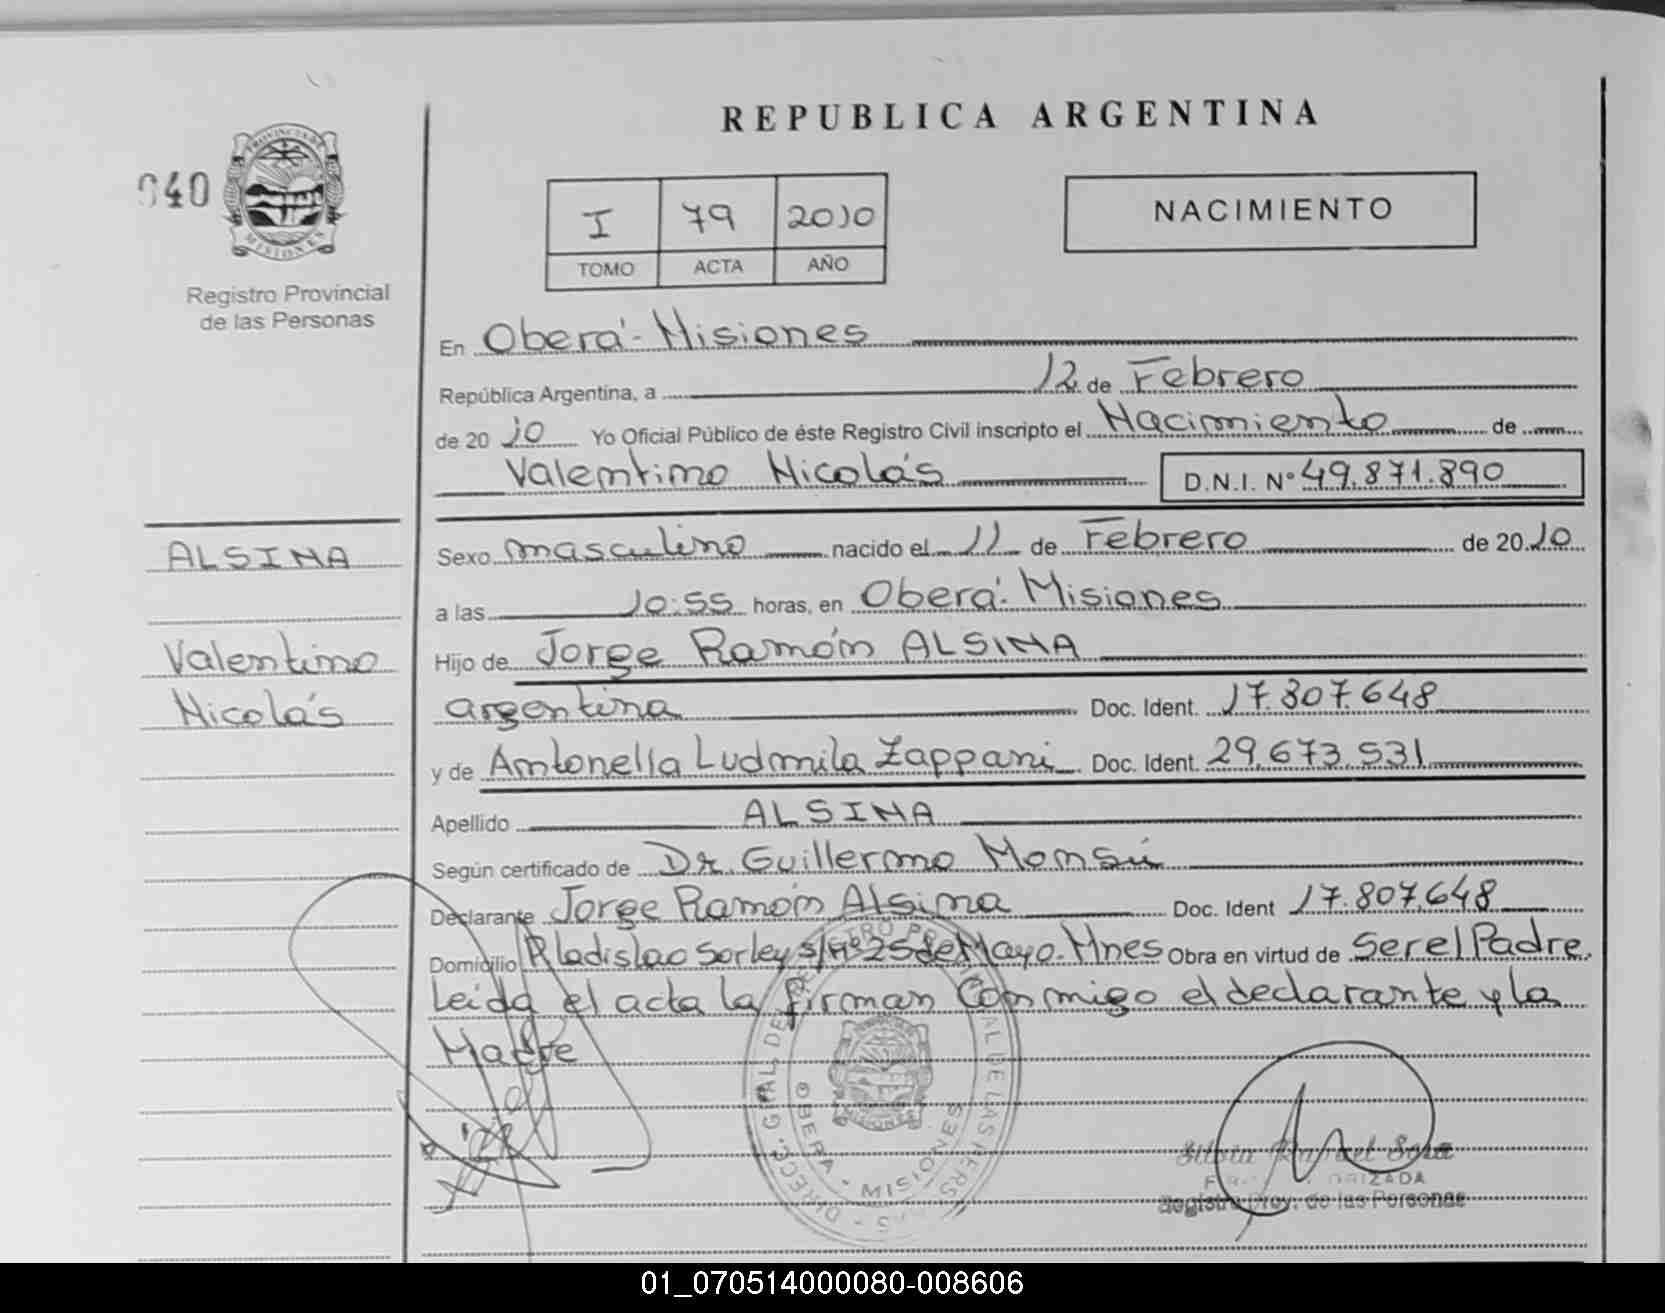 REPUBLICA ARGENTINA
040
PROVINCIA DE
MISIONES
Registro Provincial
de las Personas
I 79 2010
TOMO ACTA AÑO
NACIMIENTO
En Oberá - Misiones
República Argentina, a 12 de Febrero
de 20 10 Yo Oficial Público de éste Registro Civil inscripto el Nacimiento de
Valentino Nicolás D.N.I. N° 49.871.890
ALSINA
Valentino
Nicolás
Sexo masculino nacido el 11 de Febrero de 20 10
a las 10:55 horas, en Oberá - Misiones
Hijo de Jorge Ramón ALSINA
argentina Doc. Ident. 17.807.648
y de Antonella Ludmila Zappani Doc. Ident. 29.673.531
Apellido ALSINA
Según certificado de Dr. Guillermo Monsú
Declarante Jorge Ramón Alsina Doc. Ident 17.807.648
Domicilio Sorley s/Nº 25 de Mayo. Mnes Obra en virtud de Ser el Padre.
Leída el acta la firman Conmigo el declarante y la
Madre
OBERA - MISIONES
Registro Prov. de las Personas
01_070514000080-008606